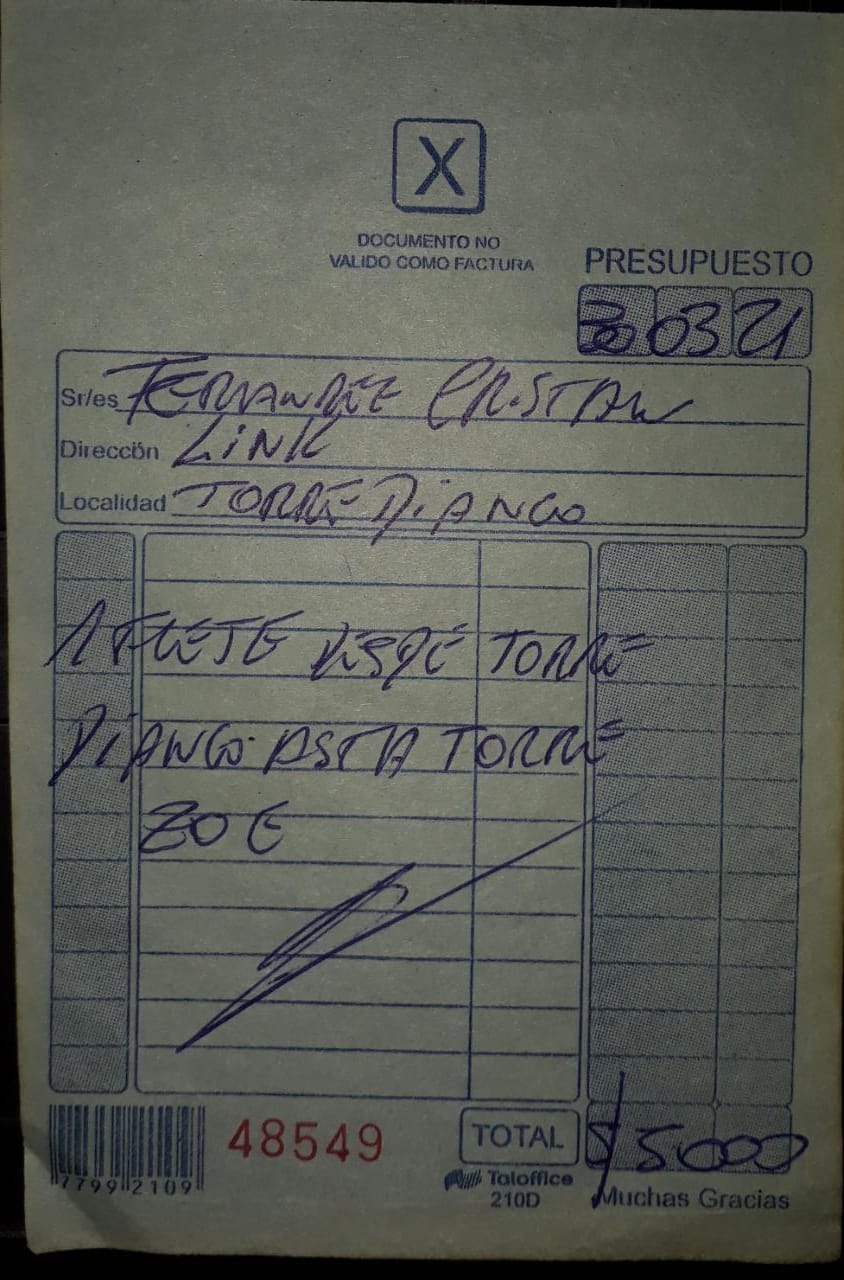 X
DOCUMENTO NO
VALIDO COMO FACTURA
PRESUPUESTO
30 03 21
Sr/es FERNANDEZ CRISTIAN
Dirección LINK
Localidad TORRE DiANGO
1 FLETE DESDE TORRE
DiANGO ASTA TORRE
ZOE
48549
TOTAL $ 5000
7799 2109
Taloffice
210D
Muchas Gracias